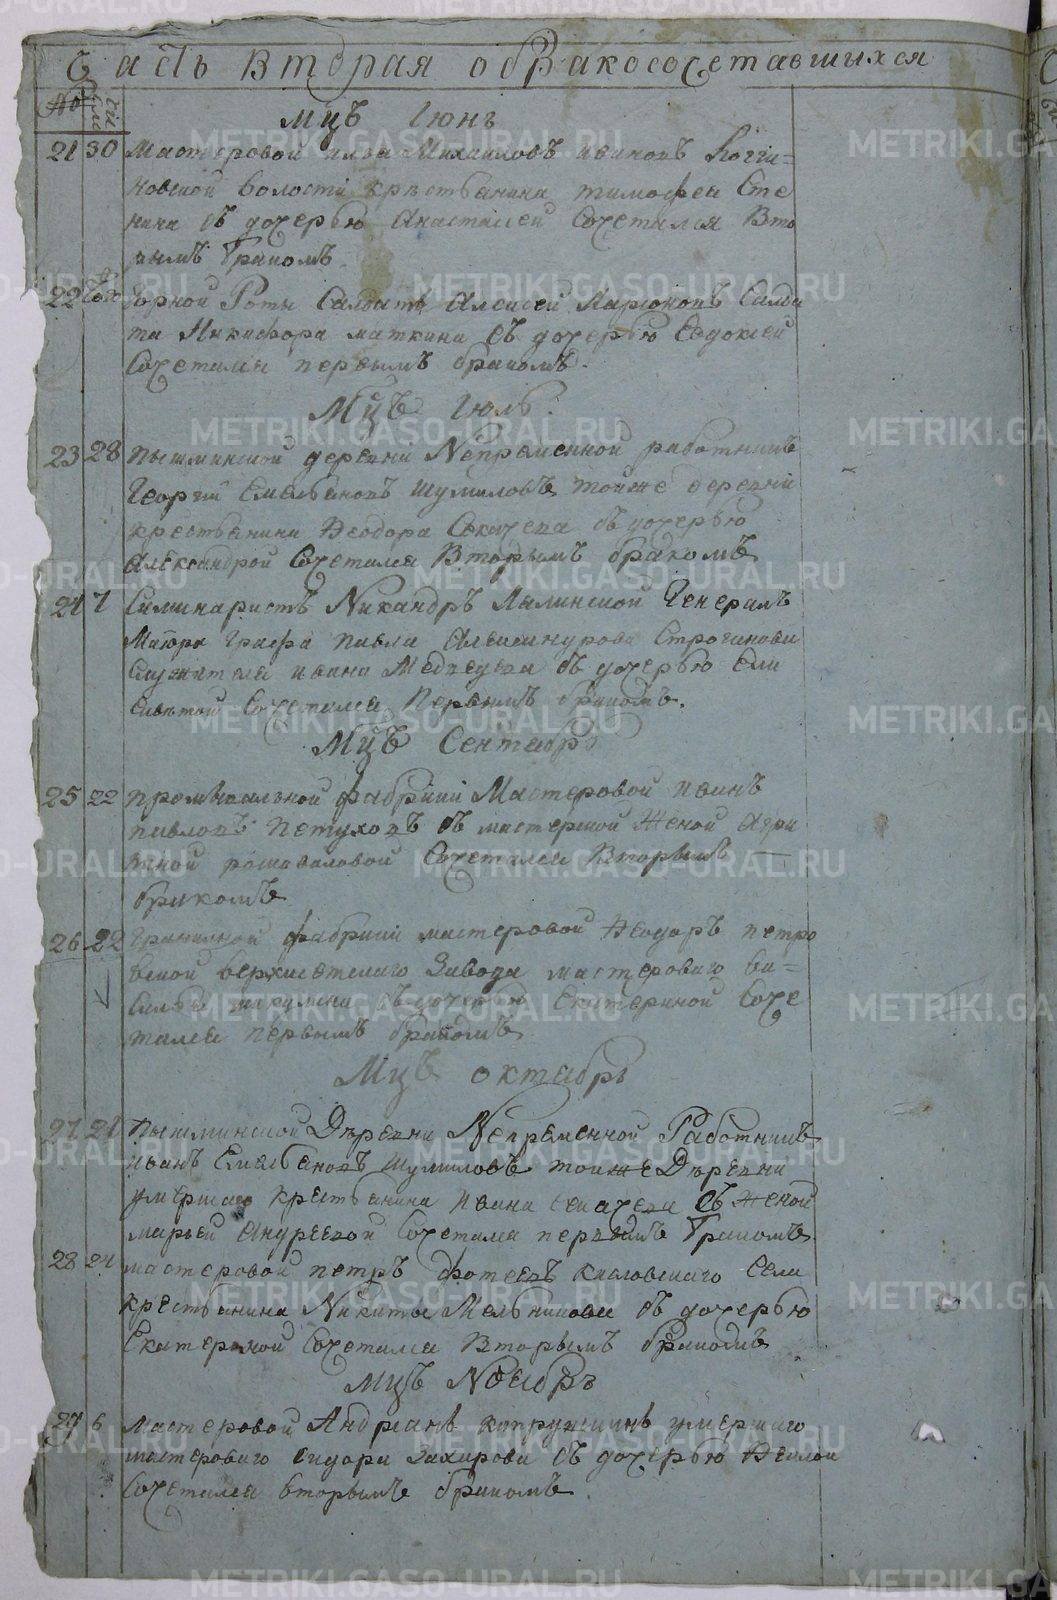 Часть Вторая о бракосочетавшихся
Мцъ Іюнь
21 30 Мастеровой Илья Михаиловъ Ивановъ
волости крестьянина тимофея Сте
нина съ дочерью Анастасіей Сочетался Вто
рымъ бракомъ
22 Горной Роты Салдатъ Алексей Ларионовъ Салда
та Никифора маткина съ дочерью Евдокіей
Сочетался первымъ бракомъ.
Мцъ Іюль
23 28 Пышминской деревни Непременной работникъ
Георгій Емельяновъ Шумиловъ тойже деревни
крестьянина Феодора Секачева съ дочерью
Александрой Сочетался Вторымъ бракомъ
24 7 Симинаристъ Никандръ Лялинской Генералъ
Маіора Графа Павла Александрова Строганова
Служителя Ивана Медведева съ дочерью Ели
саветой Сочетался Первымъ бракомъ.
Мцъ Сентябрь
25 22 фабрики Мастеровой Иванъ
павловъ Петуховъ съ мастерской Женой Агри
пиной Сочетался Вторымъ
бракомъ
26 22 Гранилной фабрики мастеровой Феодоръ петро
верхисетскаго Завода мастероваго Ва-
силья съ дочерью Екатериной Соче
тался первымъ бракомъ
Мцъ октябрь
27 21 Пышминской Деревни Непременной Работникъ
Иванъ Емельяновъ Шумиловъ тойже Деревни
умершаго крестьянина Ивана Секачева съ Женой
марьей Андреевой Сочетался первымъ бракомъ
28 24 мастеровой петръ фотеевъ кисловскаго Села
крестьянина Никиты Мельникова съ дочерью
Екатериной Сочетался Вторымъ бракомъ
Мцъ Ноябрь
29 6 Мастеровой Андріанъ умершаго
мастероваго Сидора Захарова съ дочерью Феклой
Сочетался вторымъ бракомъ.
METRIKI.GASO-URAL.RU